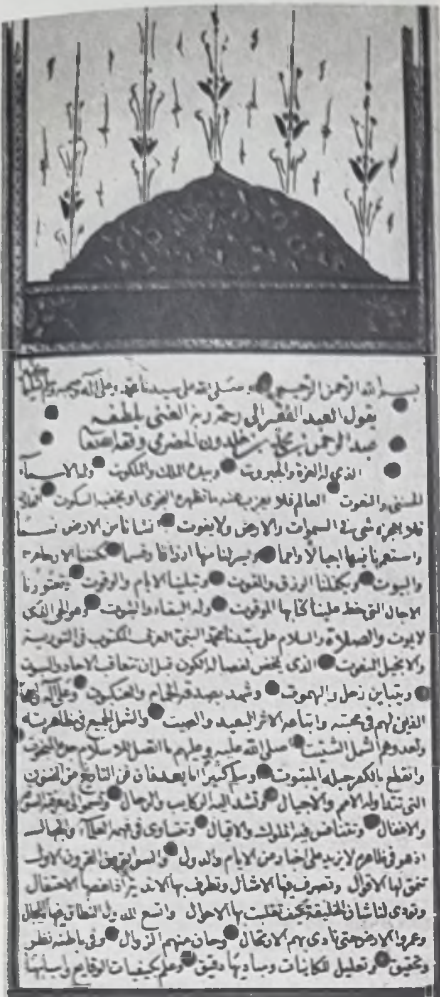 بسم الله الرحمن الرحيم وصلى الله على سيدنا محمد وعلى آله وصحبه وسلم
يقول العبد الفقير الى رحمة ربه الغنى بلطفه
عبد الرحمن بن محمد بن خلدون الحضرمي وفقه الله
الذى له العزة والجبروت وبيده الملك والملكوت وله الاسماء
الحسنى والنعوت العالم فلا يعزب عنه ما تظهره النجوى او يخفيه السكوت القادر
فلا يعجزه شى فى السموات والارض ولا يفوت انشانا من الارض نسما
واستعمرنا فيها اجيالا وامما ويسر لنا منها ارزاقا وقسما تكنفنا الارحام
والبيوت ويكفلنا الرزق والقوت وتبلينا الايام والوقوت وتعتورنا
الاجال التى خط علينا كتابها الموقوت وله البقاء والثبوت وهو الحى الذى
لا يموت والصلاة والسلام على سيدنا محمد النبى العربى المكتوب فى التورية
والانجيل المنعوت الذى تمخض لفصاله الكون قبل ان تتعاقب الاحاد والسبوت
ويتباين زحل والبهموت وشهد بصدقه الحمام والعنكبوت وعلى آله واصحابه
الذين لهم فى محبته واتباعه الاثر البعيد والصيت والشمل الجميع فى مظاهرته
ولعدوهم الشمل الشتيت صلى الله عليه وعليهم ما اتصل للاسلام جده المبخوت
وانقطع بالكفر حبله المبتوت وسلم كثيرا اما بعد فان فن التاريخ من الفنون
التى تتداوله الامم والاجيال وتشد اليه الركايب والرحال وتسمو الى معرفته السوقة
والاغفال وتتنافس فيه الملوك والاقيال وتتساوى فى فهمه العلماء والجهال
اذ هو فى ظاهره لا يزيد على اخبار عن الايام والدول والسوابق من القرون الاول
تنمق لها الاقوال وتصرف فيها الامثال وتطرف بها الاندية اذا غصها الاحتفال
وتودى لنا شان الخليقة كيف تقلبت بها الاحوال واتسع للدول النطاق فيها والمجال
وعمروا الارض حتى نادى بهم الارتحال وحان منهم الزوال وفى باطنه نظر
وتحقيق وتعليل للكاينات ومباديها دقيق وعلم بكيفيات الوقايع واسبابها